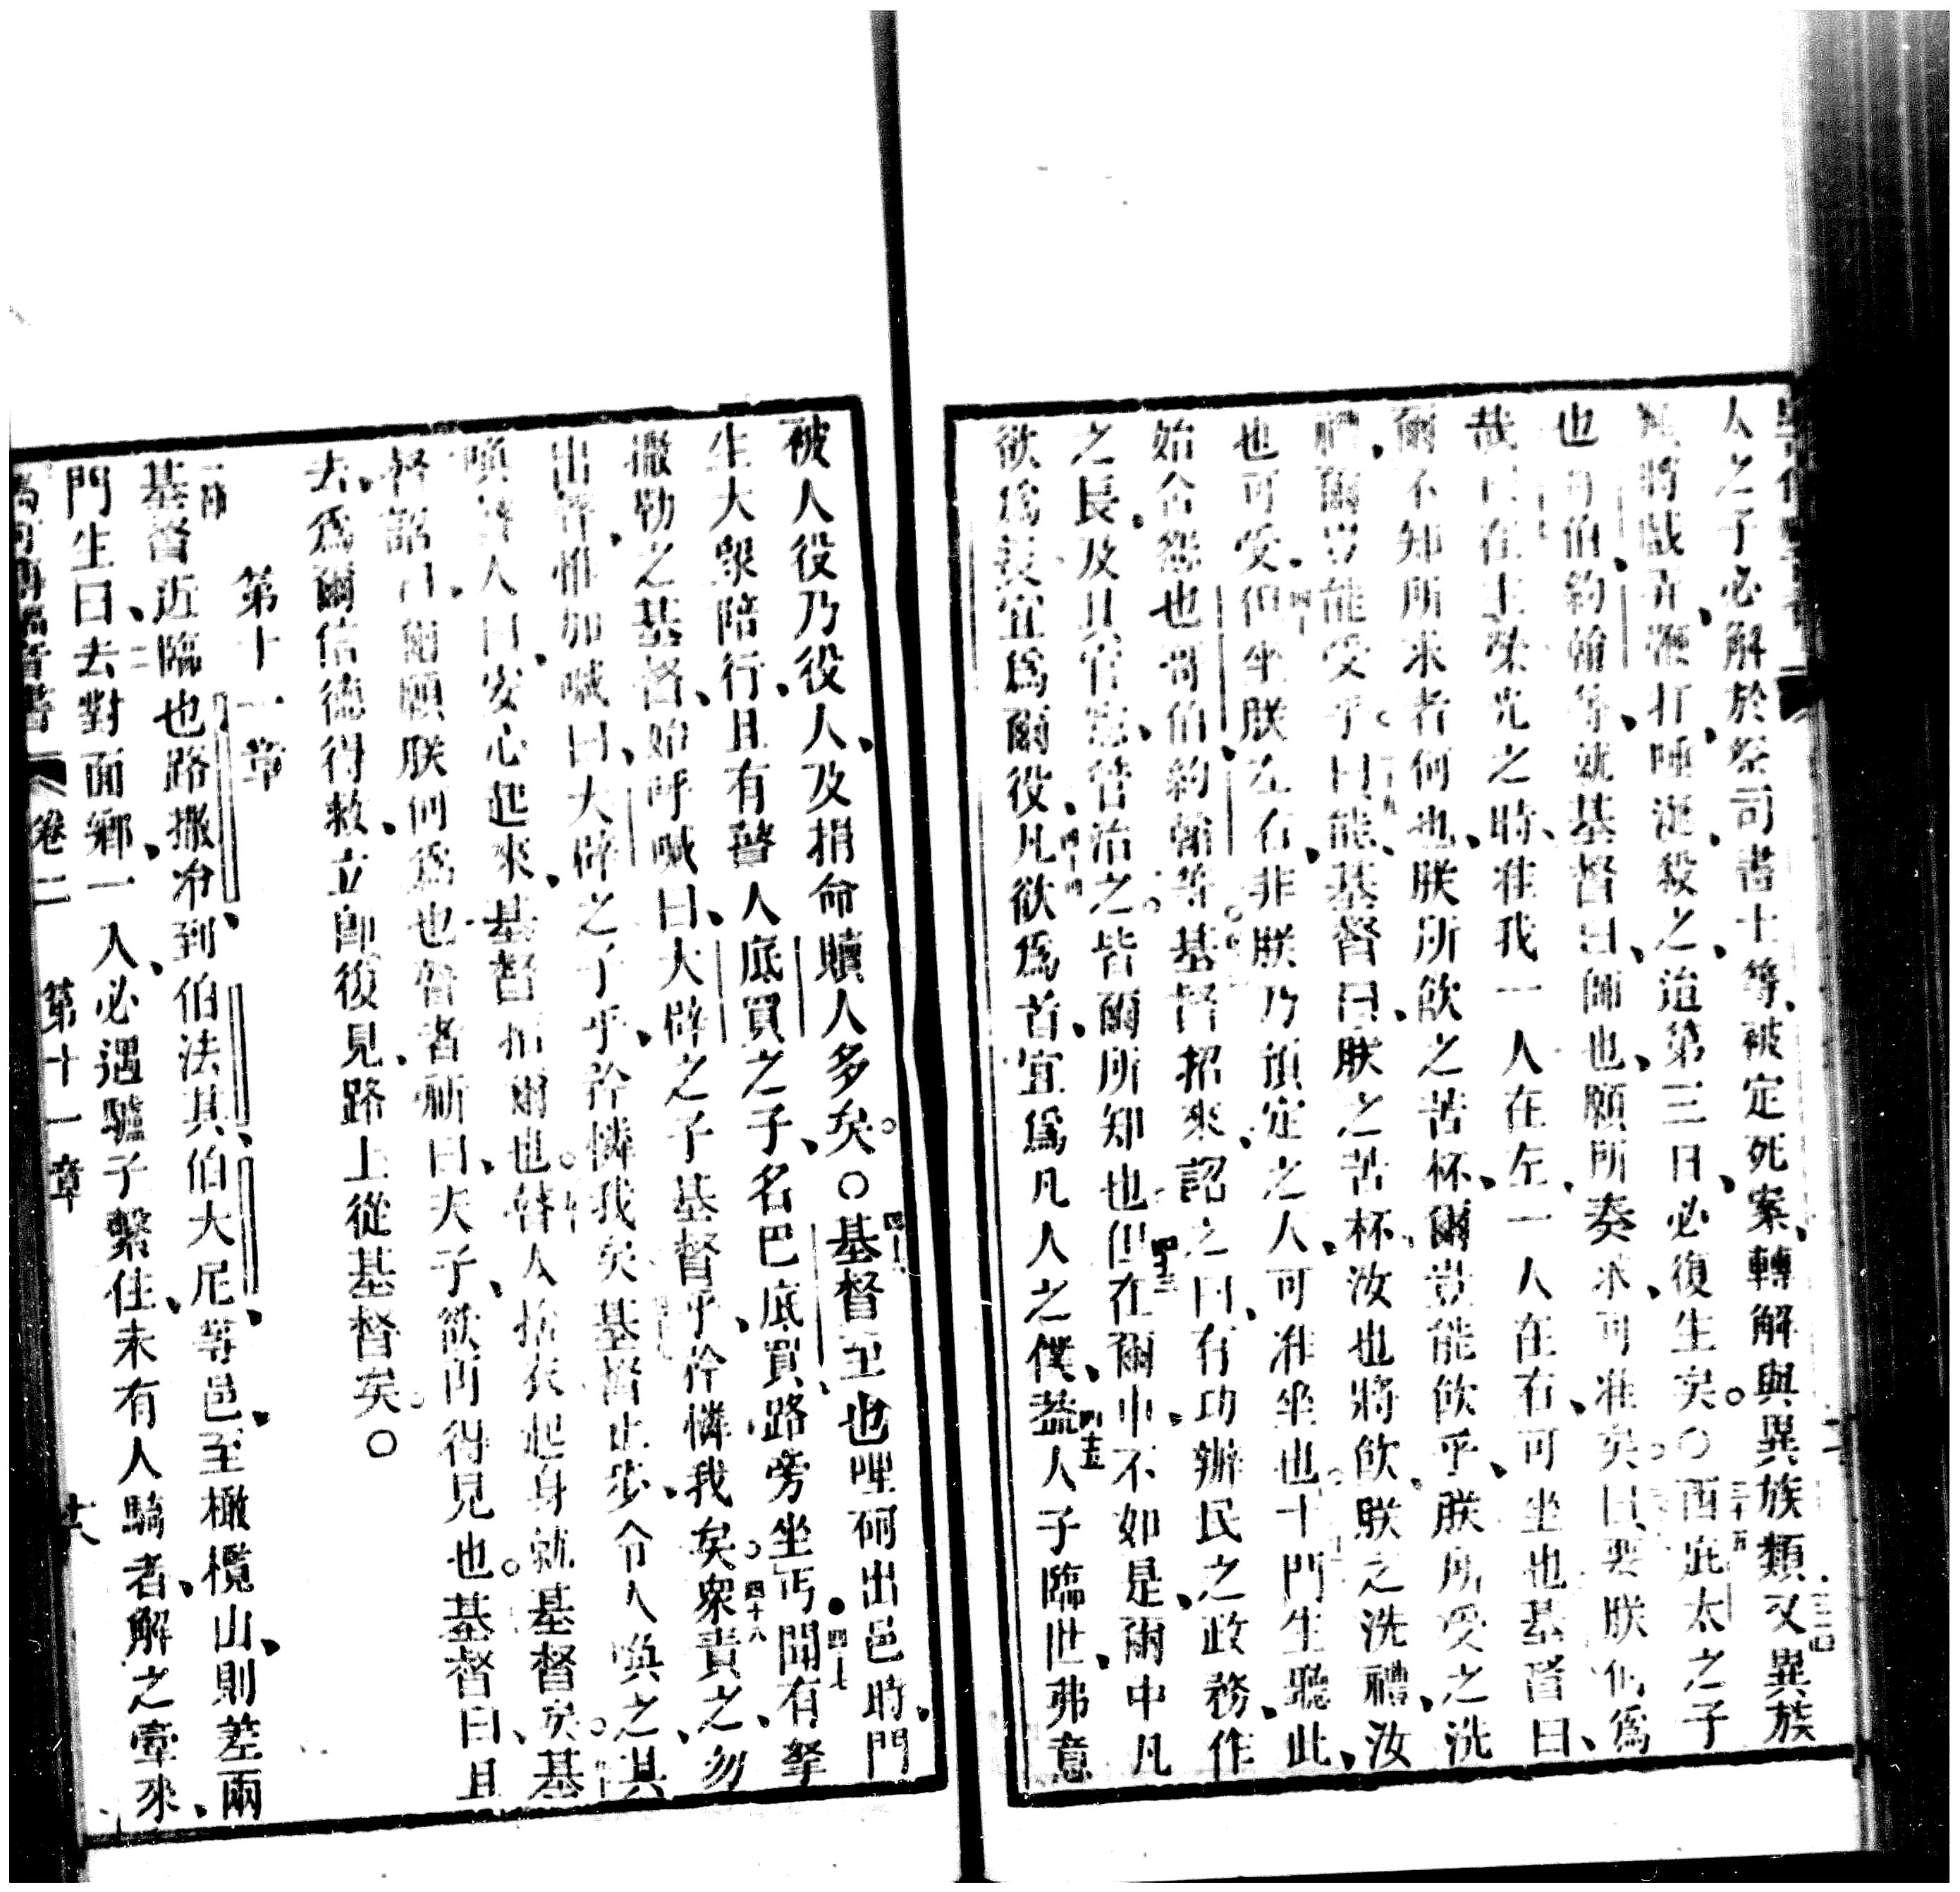 人之子必解於祭司書士等、被定死案、轉解與異族類、又異族
將戲弄、鞭打、唾涎、殺之、迨第三日、必復生矣。〇西庇太之子
也哥伯、約翰等、就基督曰、師也、願所奏求、可准矣。曰要朕何爲
哉曰在主榮光之時、准我一人在左、一人在右、可坐也基督曰、
爾不知所求者何也、朕所飲之苦杯、爾豈能飲乎、朕所受之洗
禮、爾豈能受乎。曰能、基督曰、朕之苦杯、汝也將飲、朕之洗禮、汝
也可受、但坐朕左右、非朕乃預定之人、可准坐也。十門生聽此、
始含怨也哥伯約翰等。基督招來、詔之曰、有功辦民之政務、作
之長、及其官憲、管治之、皆爾所知也、四十三但在爾中、不如是、爾中凡
欲爲長、宜爲爾役、四十四凡欲爲首、宜爲凡人之僕、四十五蓋人子臨世、弗意
被人役、乃役人、及捐命贖人多矣。〇四十六基督至也哩𠵽出邑時、門
生大衆陪行、且有瞽人底買之子、名巴底買、路旁坐丐、四十七聞有拏
撒勒之基督、始呼喊曰、大辟之子基督乎、矜憐我矣。四十八衆責之、勿
出聲、惟加喊曰、大辟之子乎、矜憐我矣基督止步、令人喚之、其
喚瞽人曰、安心起來、基督招爾也。瞽人捨衣起身、就基督矣。基
督詔曰、爾願朕何爲也瞽者祈曰、夫子、欲再得見也。基督曰、且
去、爲爾信德得救、立卽復見、路上從基督矣。〇
第十一章
基督近臨也路撒冷、到伯法其、伯大尼等邑、至橄欖山、則差兩
門生曰、二去對面鄉、一入、必遇驢子繫住、未有人騎者、解之牽來、
卷二 第十一章 十六